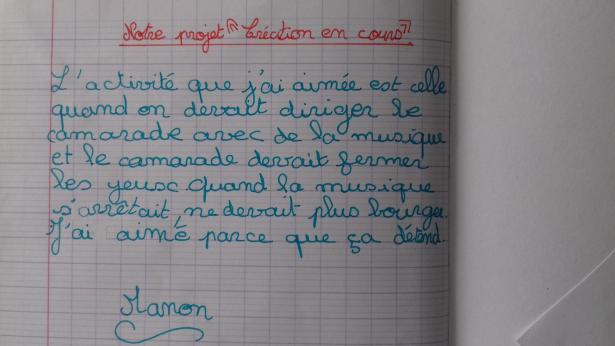 Notre projet "Création en cours"
L'activité que j'ai aimée est celle
quand on devait diriger le
camarade avec de la musique
et le camarade devait fermer
les yeux quand la musique
s'arrêtait, ne devait plus bouger.
J'ai aimé parce que ça détend.
Manon